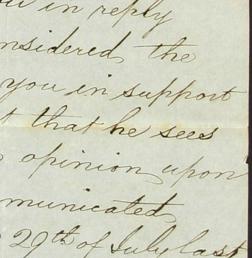 in reply
nsidered the
you in support
t that he sees
opinion upon
municated
29th of July last